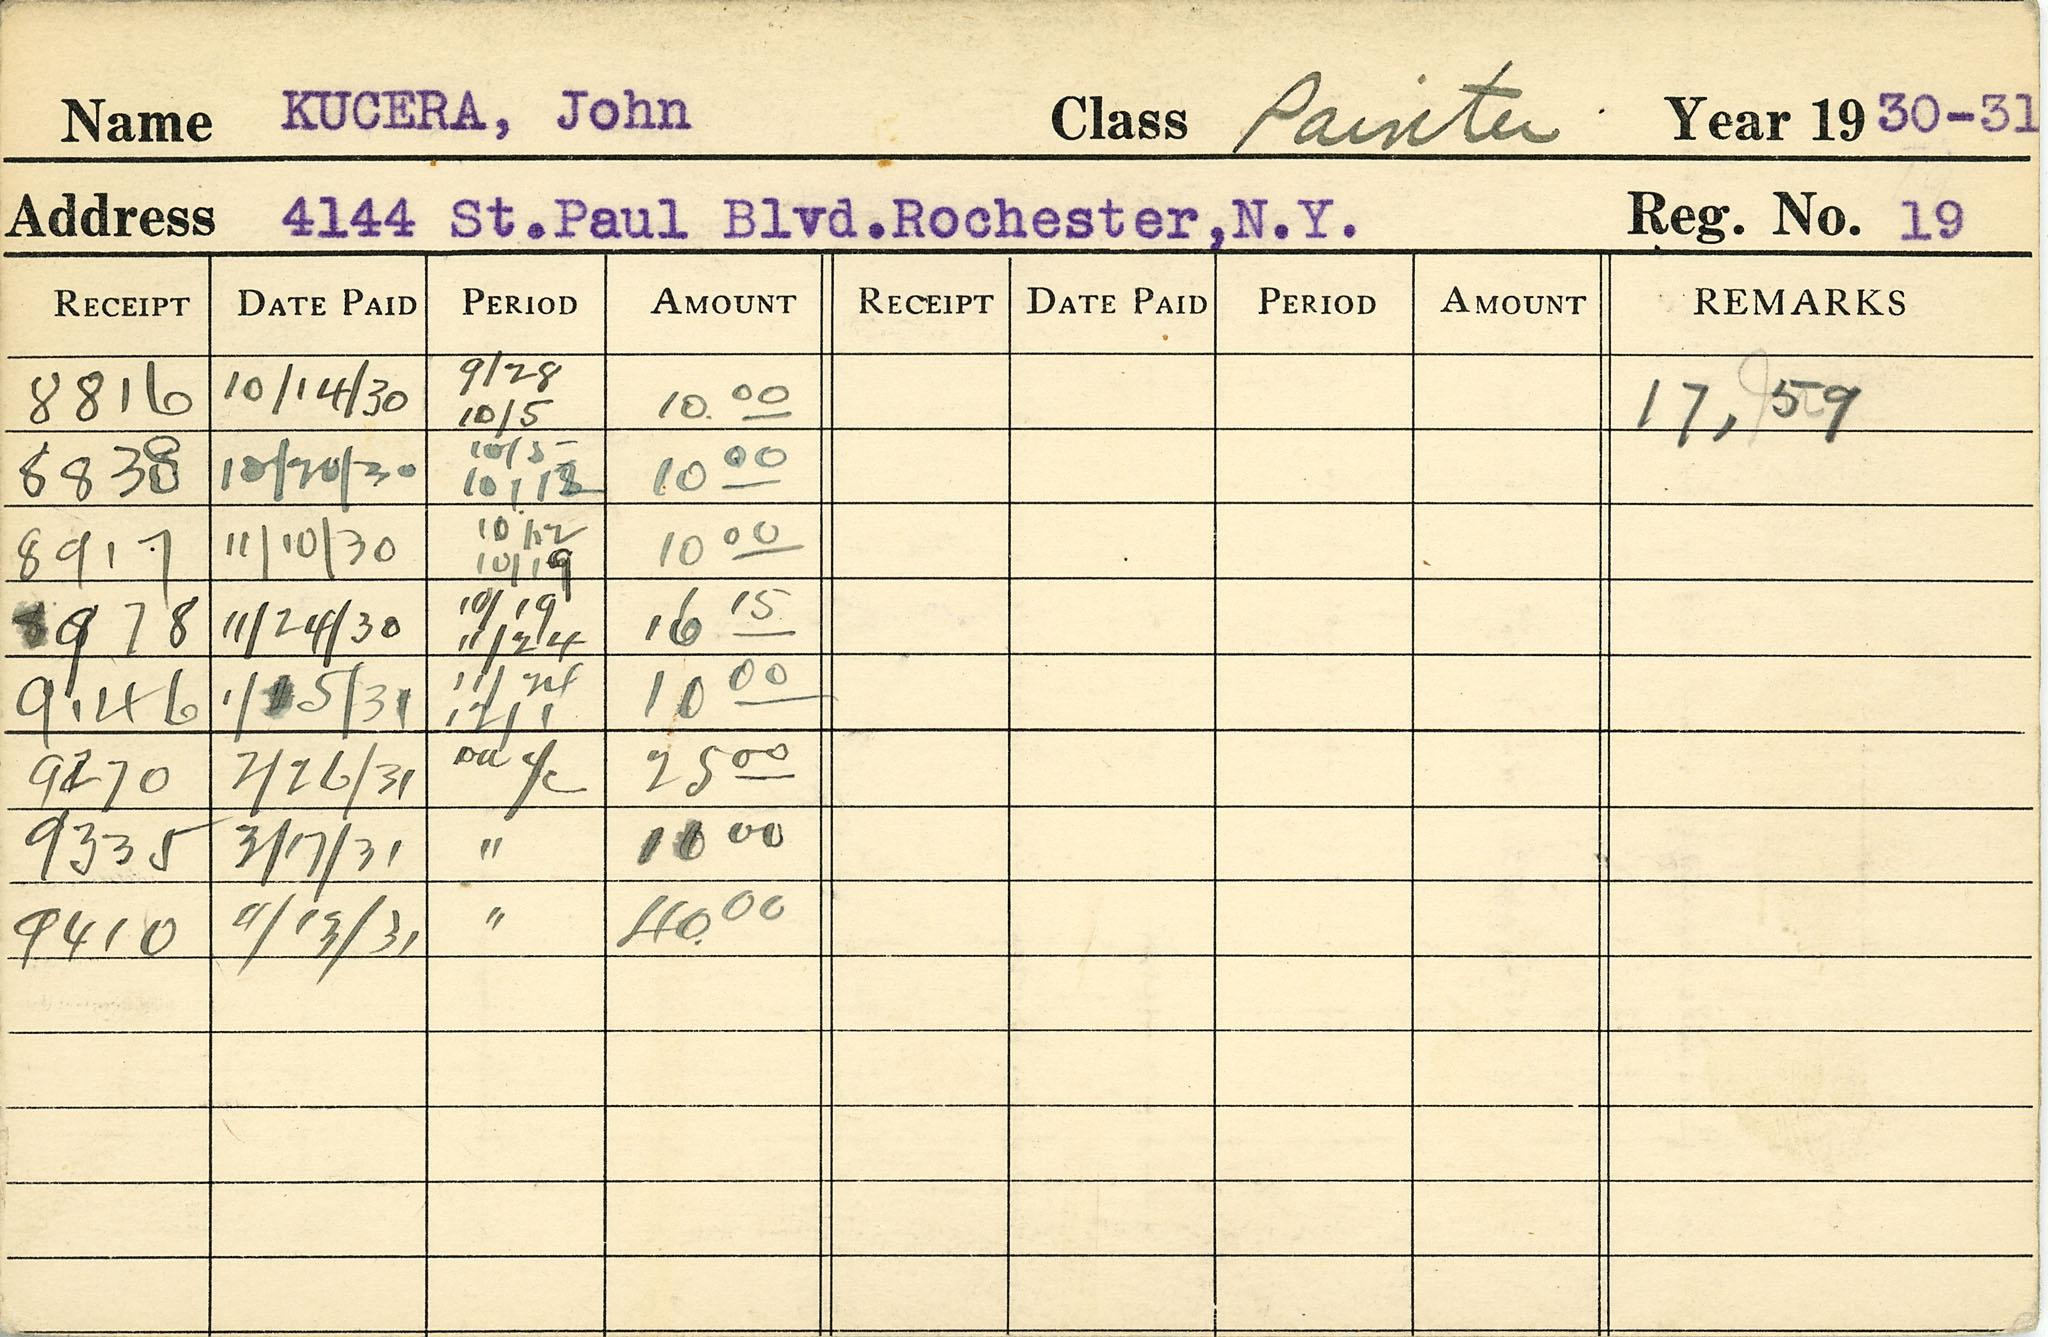 Name KUCERA, John Class Painter Year 19 30-31
Address 4144 St.Paul Blvd.Rochester,N.Y. Reg. No. 19
RECEIPT DATE PAID PERIOD AMOUNT RECEIPT DATE PAID PERIOD AMOUNT REMARKS
8816 10/14/30 9/28 10/5 10.00 17,59
8838 10/20/30 10/5 10/12 10 00
8917 11/10/30 10/12 10/19 10 00
8978 11/24/30 10/19 11/24 16 15
9146 1/15/31 11/24 12/1 10 00
9270 2/26/31 on a/c 25 00
9335 3/17/31 " 10 00
9410 4/13/31 " 40.00